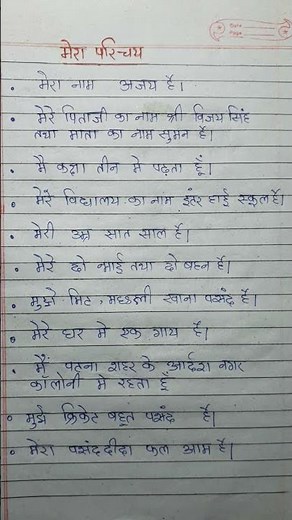 मेरा परिचय
मेरा नाम अजय है।
मेरे पिताजी का नाम श्री विजय सिंह
तथा माता का नाम सुमन है।
मै कक्षा तीन मे पढ़ता हूँ।
मेरे विद्यालय का नाम इंटर हाई स्कूल है।
मेरी उम्र सात साल है।
मेरे दो भाई तथा दो बहन है।
मुझे मिट, मछली खाना पसंद है।
मेरे घर मे एक गाय है।
मैं पटना शहर के आर्दश नगर
कॉलोनी मे रहता हूँ
मुझे क्रिकेट बहुत पसंद है।
मेरा पसंददीदा फल आम है।